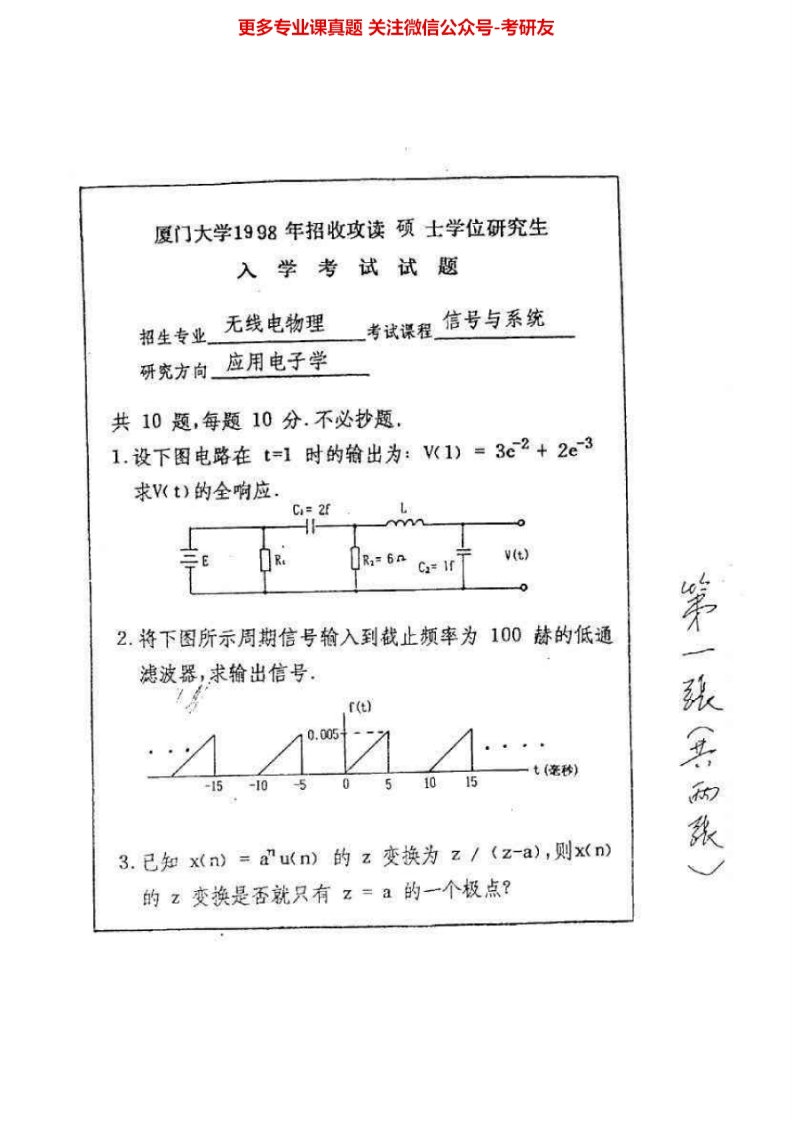 更多专业课真题 关注微信公众号-考研友
厦门大学1998 年招收攻读 硕 士学位研究生
入 学 考 试 试 题
招生专业 无线电物理 考试课程 信号与系统
研究方向 应用电子学
共 10 题,每题 10 分.不必抄题.
1.设下图电路在 t=1 时的输出为: V(1) = 3e⁻² + 2e⁻³
求V(t)的全响应.
C₁= 2f L
E R₁ R₂= 6Ω C₂= 1f V(t)
2.将下图所示周期信号输入到截止频率为 100 赫的低通
滤波器,求输出信号.
f(t)
0.005
-15 -10 -5 0 5 10 15 t(毫秒)
3.已知 x(n) = aⁿu(n) 的 z 变换为 z / (z-a),则x(n)
的 z 变换是否就只有 z = a 的一个极点?
第一张(共两张)